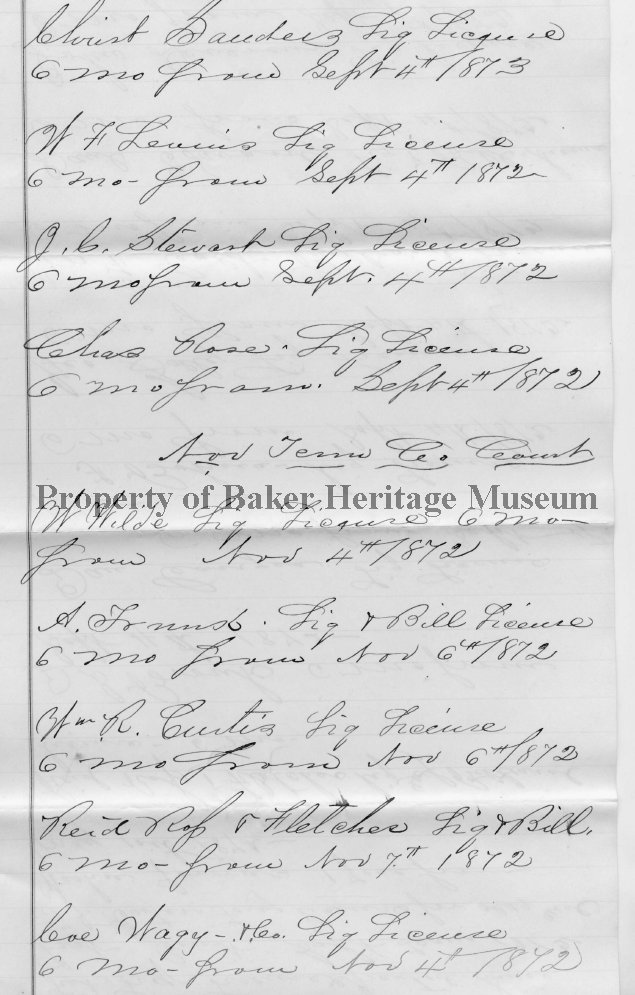 Christ Sanders Liq License
6 mo from Sept 4th/1873
W F Lewis Liq License
6 mo- from Sept 4th 1872
J. C. Stewart Liq License
6 mo from Sept. 4th/1872
Chas Rose. Liq License
6 mo from. Sept 4th/1872
Nov Term Co Court
Property of Baker Heritage Museum
W Wilde Liq License 6 mo-
from Nov 4th/1872
A. Liq & Bill License
6 mo from Nov 6th/1872
Wm R. Curtis Liq License
6 mo from Nov 6th/1872
Reid Ross & Fletcher Liq & Bill.
6 mo- from Nov 7.th 1872
Coe Wagy- & Co. Liq License
6 mo- from Nov 4th/1872